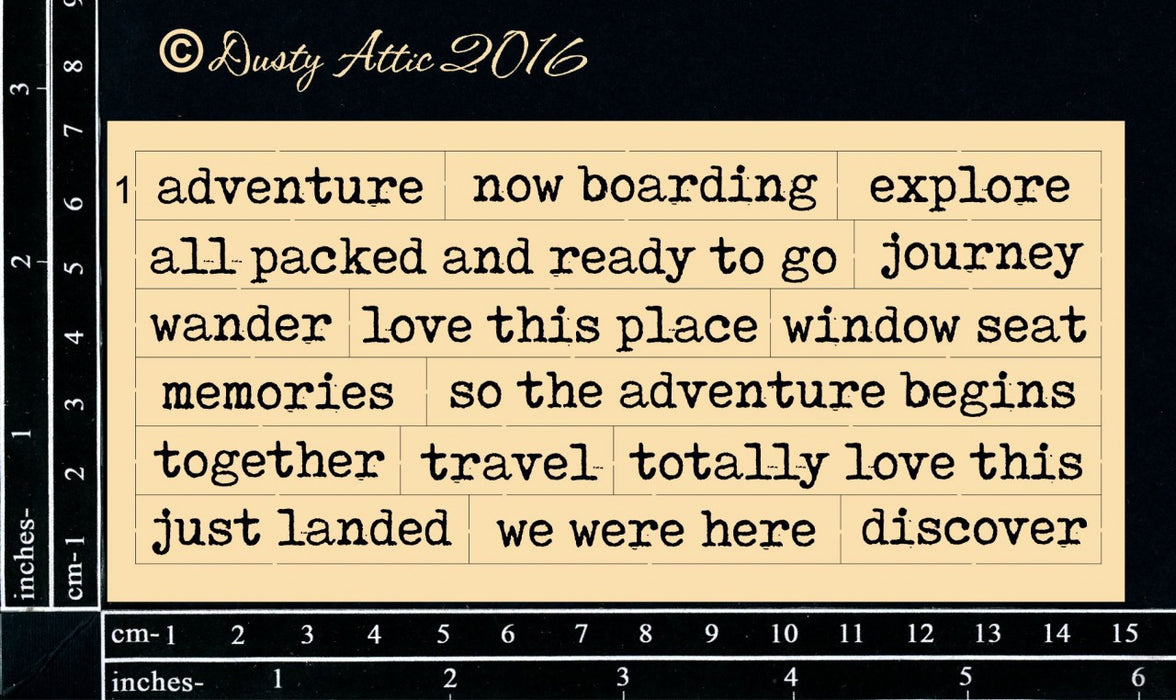 © Dusty Attic 2016
1 adventure now boarding explore
all packed and ready to go journey
wander love this place window seat
memories so the adventure begins
together travel totally love this
just landed we were here discover
inches- 1 2 3
cm-1 2 3 4 5 6 7 8 9
cm-1 2 3 4 5 6 7 8 9 10 11 12 13 14 15
inches- 1 2 3 4 5 6